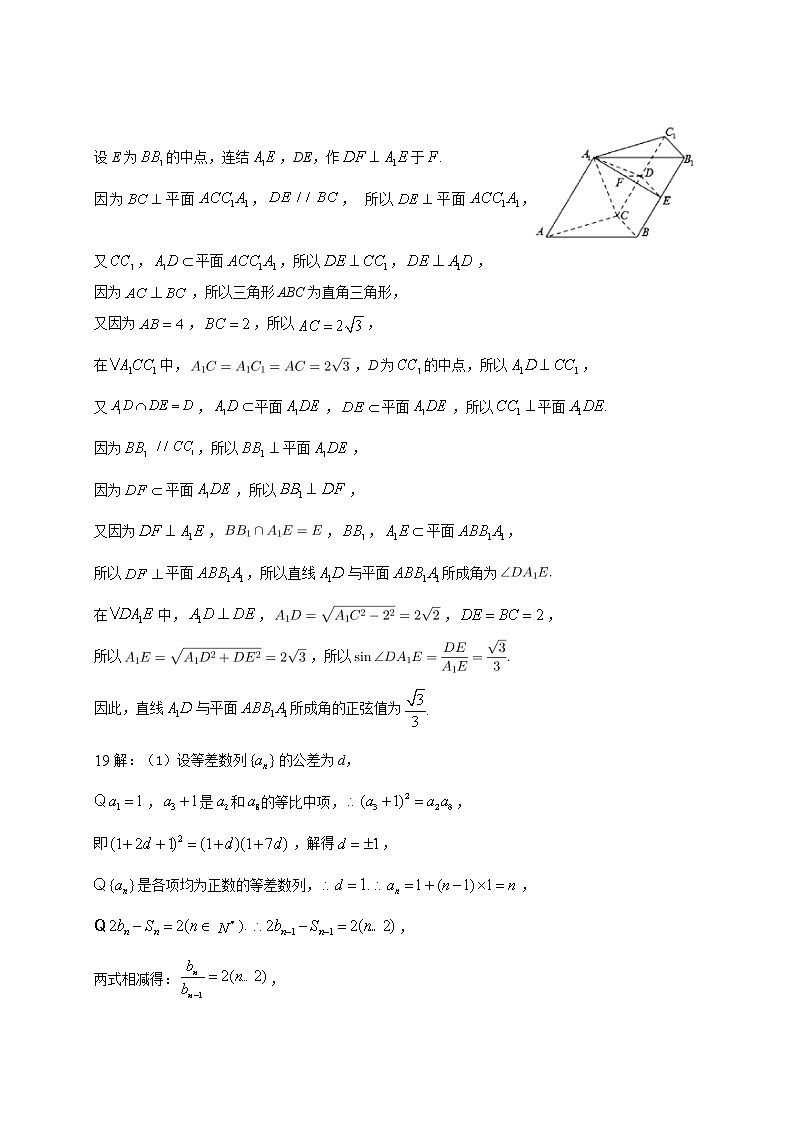 设 E 为 BB₁ 的中点，连结 A₁E ，DE，作 DF ⊥ A₁E 于 F.
因为 BC ⊥ 平面 ACC₁A₁ ， DE // BC ， 所以 DE ⊥ 平面 ACC₁A₁ ，
又 CC₁ ， A₁D ⊂ 平面 ACC₁A₁ ，所以 DE ⊥ CC₁ ， DE ⊥ A₁D ，
因为 AC ⊥ BC ，所以三角形 ABC 为直角三角形，
又因为 AB = 4 ， BC = 2 ，所以 AC = 2√3 ，
在 VA₁CC₁ 中， A₁C = A₁C₁ = AC = 2√3 ，D 为 CC₁ 的中点，所以 A₁D ⊥ CC₁ ，
又 A₁D ∩ DE = D ， A₁D ⊂ 平面 A₁DE ， DE ⊂ 平面 A₁DE ，所以 CC₁ ⊥ 平面 A₁DE.
因为 BB₁ // CC₁ ，所以 BB₁ ⊥ 平面 A₁DE ，
因为 DF ⊂ 平面 A₁DE ，所以 BB₁ ⊥ DF ，
又因为 DF ⊥ A₁E ， BB₁ ∩ A₁E = E ， BB₁ ， A₁E ⊂ 平面 ABB₁A₁ ，
所以 DF ⊥ 平面 ABB₁A₁ ，所以直线 A₁D 与平面 ABB₁A₁ 所成角为 ∠DA₁E.
在 VDA₁E 中， A₁D ⊥ DE ， A₁D = √(A₁C² − 2²) = 2√2 ， DE = BC = 2 ，
所以 A₁E = √(A₁D² + DE²) = 2√3 ，所以 sin ∠DA₁E = DE/A₁E = √3/3.
因此，直线 A₁D 与平面 ABB₁A₁ 所成角的正弦值为 √3/3.
19 解：（1）设等差数列 {aₙ} 的公差为 d，
Q a₁ = 1 ， a₃ + 1 是 a₂ 和 a₈ 的等比中项，∴ (a₃ + 1)² = a₂a₈ ，
即 (1 + 2d + 1)² = (1 + d)(1 + 7d) ，解得 d = ±1 ，
Q {aₙ} 是各项均为正数的等差数列，∴ d = 1. ∴ aₙ = 1 + (n − 1) × 1 = n ，
Q 2bₙ − Sₙ = 2(n ∈ N*). ∴ 2bₙ₋₁ − Sₙ₋₁ = 2(n.. 2) ，
两式相减得：bₙ/bₙ₋₁ = 2(n.. 2) ，
A₁
C₁
B₁
D
F
E
C
A
B